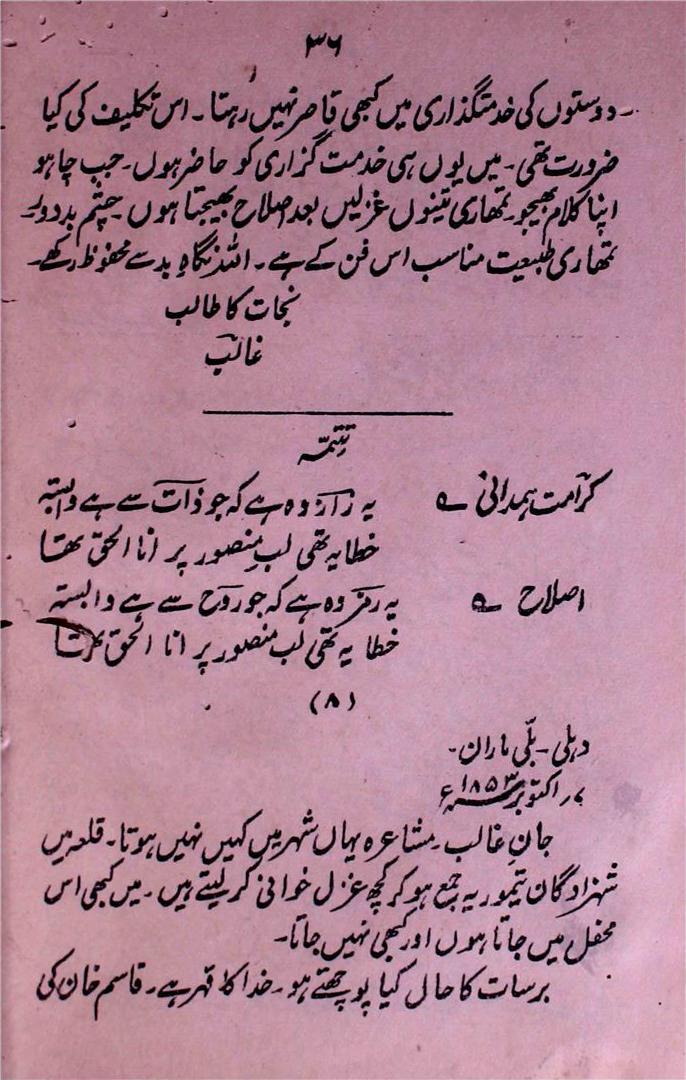 ۳۶
دوستوں کی خدمتگذاری میں کبھی قاصر نہیں رہتا۔ اس تکلیف کی کیا
ضرورت تھی۔ میں یوں ہی خدمت گزاری کو حاضر ہوں۔ جب چاہو
اپنا کلام بھیجو۔ تمھاری تینوں غزلیں بعد اصلاح بھیجتا ہوں۔ چشم بد دور۔
تمھاری طبیعت مناسب اس فن کے ہے۔ اللہ نگاہِ بد سے محفوظ رکھے۔
نجات کا طالب
غالب
تتمّہ
کرامت ہمدانی ؎ یہ راز وہ ہے کہ جو ذات سے ہے وابستہ
خطا یہ تھی لبِ منصور پر انا الحق تھا
اصلاح ؎ یہ رمز وہ ہے کہ جو روح سے ہے وابستہ
خطا یہ تھی لب منصور پر انا الحق تھا
(۸)
دہلی۔ بلّی ماران۔
۷؍ اکتوبر ۱۸۵۳ء
جانِ غالب۔ مشاعرہ یہاں شہر میں کہیں نہیں ہوتا۔ قلعہ میں
شہزادگان تیموریہ جمع ہو کر کچھ غزل خوانی کر لیتے ہیں۔ میں کبھی اس
محفل میں جاتا ہوں اور کبھی نہیں جاتا۔
برسات کا حال کیا پوچھتے ہو۔ خدا کا قہر ہے۔ قاسم خان کی